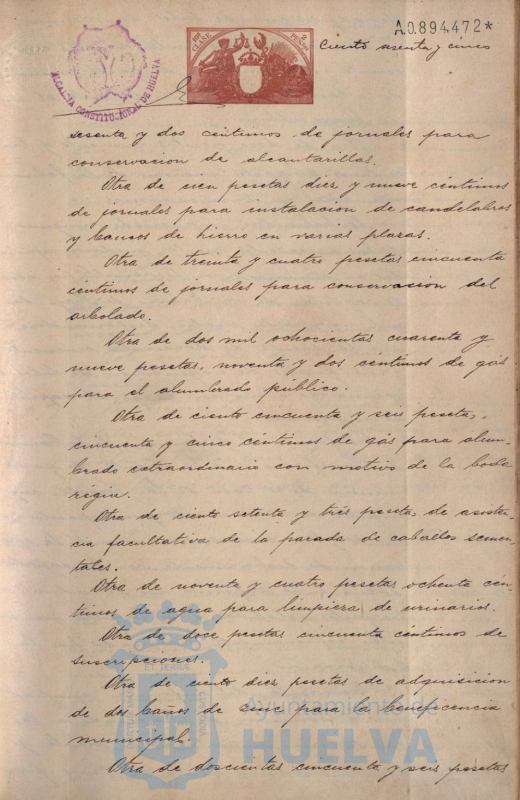 A.0.894.472*
CLASE
PESETAS
ALCALDIA CONSTITUCIONAL DE HUELVA
Ciento sesenta y cinco
sesenta y dos céntimos de jornales para
conservacion de alcantarillas.
Otra de cien pesetas diez y nueve céntimos
de jornales para instalacion de candelabros
y bancos de hierro en varias plazas.
Otra de treinta y cuatro pesetas cincuenta
céntimos de jornales para conservacion del
arbolado.
Otra de dos mil ochocientas cuarenta y
nueve pesetas, noventa y dos céntimos de gas
para el alumbrado público.
Otra de ciento cincuenta y seis pesetas,
cincuenta y cinco céntimos de gas para alum-
brado extraordinario con motivo de la boda
régia.
Otra de ciento setenta y tres pesetas, de asisten-
cia facultativa de la parada de caballos semen-
tales.
Otra de noventa y cuatro pesetas ochenta cén-
timos de agua para limpieza de urinarios.
Otra de doce pesetas cincuenta céntimos de
suscripciones.
Otra de ciento diez pesetas de adquisicion
de dos baños de zinc para la beneficencia
municipal.
Otra de doscientas cincuenta y seis pesetas
Ayuntamiento de
HUELVA